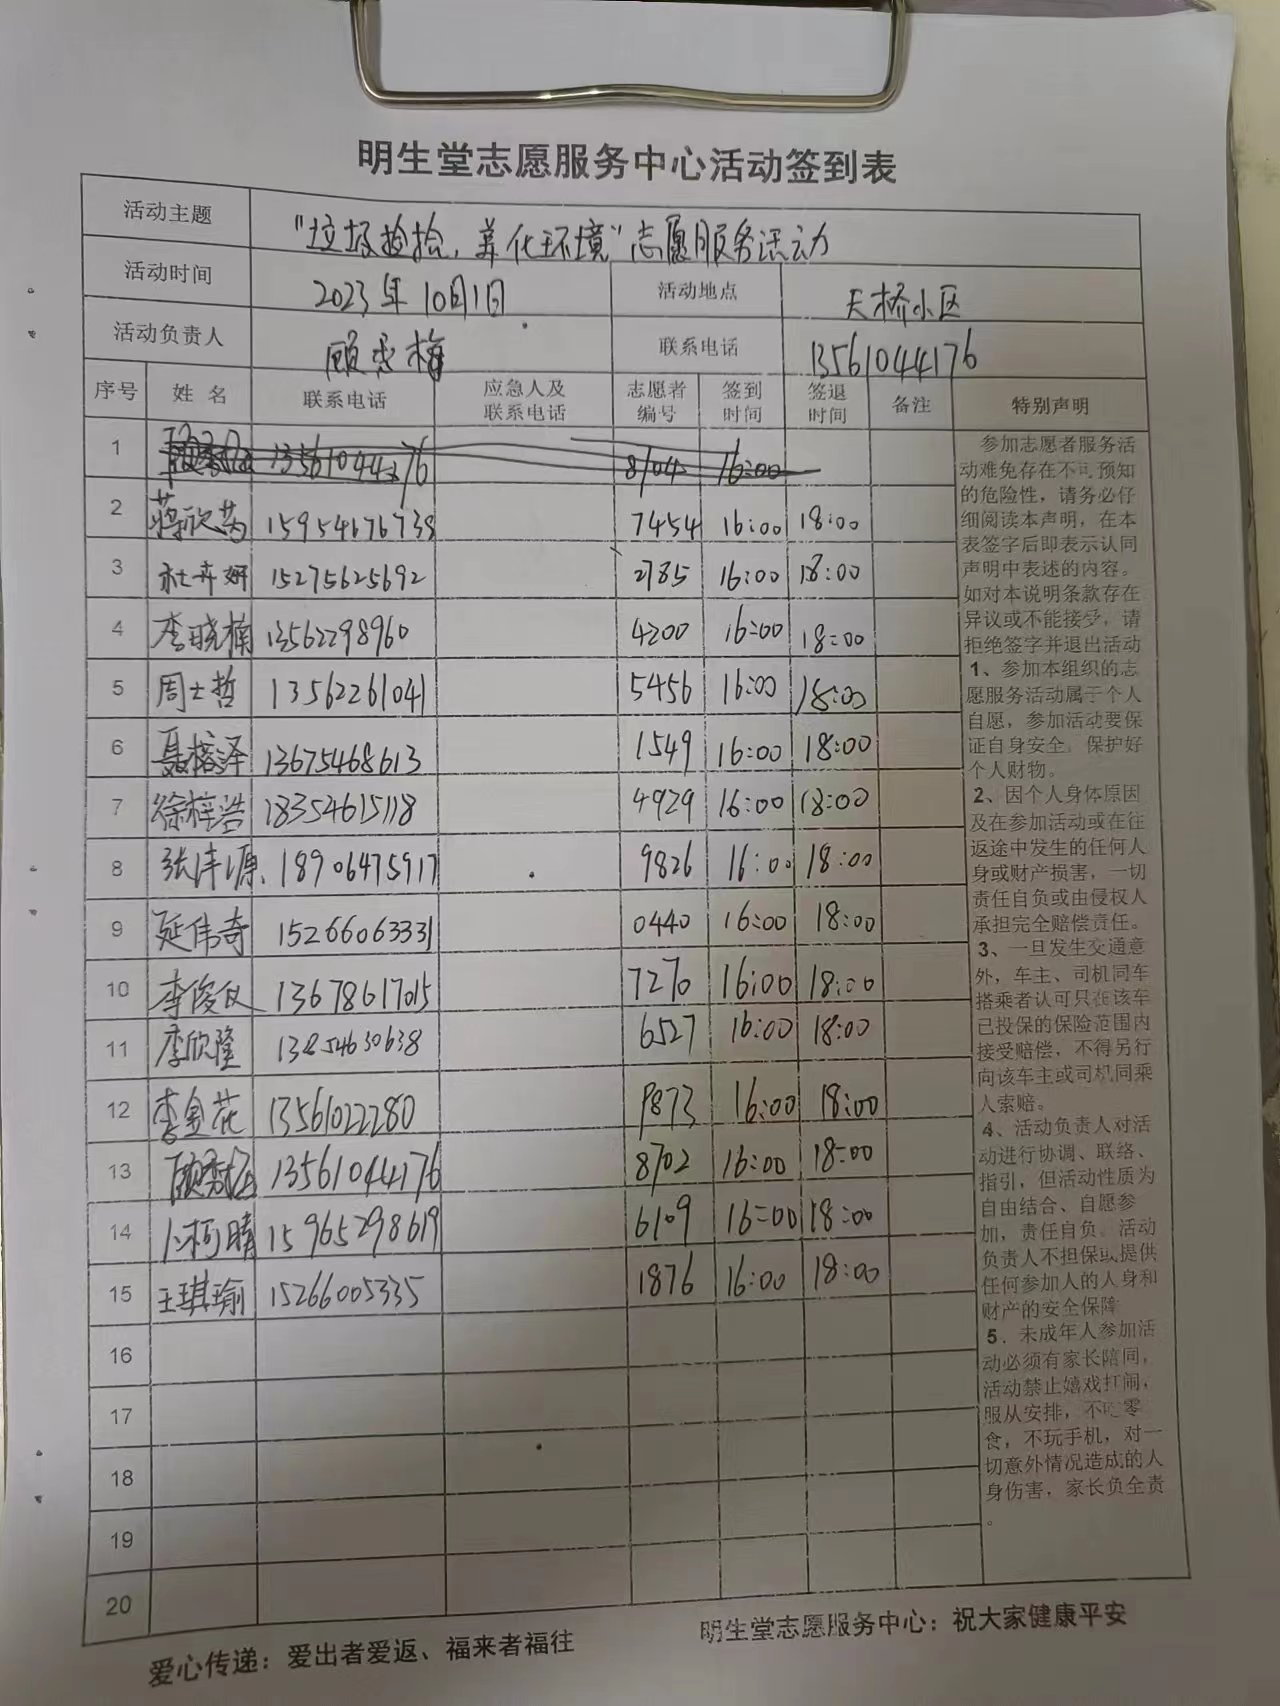 明生堂志愿服务中心活动签到表
活动主题 "垃圾捡拾，美化环境"志愿服务活动
活动时间 2023年10月1日 活动地点 天桥小区
活动负责人 顾秀梅 联系电话 13561044176
序号 姓名 联系电话 应急人及联系电话 志愿者编号 签到时间 签退时间 备注 特别声明
1 16:00
2 蒋欣芮 15954676738 7454 16:00 18:00
3 杜卉妍 15275625692 2785 16:00 18:00
4 李晓楠 13562298960 4200 16:00 18:00
5 周士哲 13562261041 5456 16:00 18:00
6 聂榕泽 13675468613 1549 16:00 18:00
7 徐梓浩 18354615118 4929 16:00 18:00
8 张沣源 18906475917 9826 16:00 18:00
9 延伟奇 15266063331 0440 16:00 18:00
10 李俊仪 13678617015 7270 16:00 18:00
11 李欣隆 13854630638 6527 16:00 18:00
12 李金花 13561022280 1873 16:00 18:00
13 顾秀梅 13561044176 8702 16:00 18:00
14 卜柯晴 15965298619 6109 16:00 18:00
15 王琪瑜 15266005335 1876 16:00 18:00
16
17
18
19
20
参加志愿者服务活
动难免存在不可预知
的危险性，请务必仔
细阅读本声明，在本
表签字后即表示认同
声明中表述的内容。
如对本说明条款存在
异议或不能接受，请
拒绝签字并退出活动
1、参加本组织的志
愿服务活动属于个人
自愿，参加活动要保
证自身安全，保护好
个人财物。
2、因个人身体原因
及在参加活动或在往
返途中发生的任何人
身或财产损害，一切
责任自负或由侵权人
承担完全赔偿责任。
3、一旦发生交通意
外，车主、司机同车
搭乘者认可只在该车
已投保的保险范围内
接受赔偿，不得另行
向该车主或司机同乘
人索赔。
4、活动负责人对活
动进行协调、联络、
指引，但活动性质为
自由结合、自愿参
加，责任自负。活动
负责人不担保或提供
任何参加人的人身和
财产的安全保障
5、未成年人参加活
动必须有家长陪同，
活动禁止嬉戏打闹，
服从安排，不吃零
食，不玩手机，对一
切意外情况造成的人
身伤害，家长负全责
。
爱心传递：爱出者爱返、福来者福往 明生堂志愿服务中心：祝大家健康平安